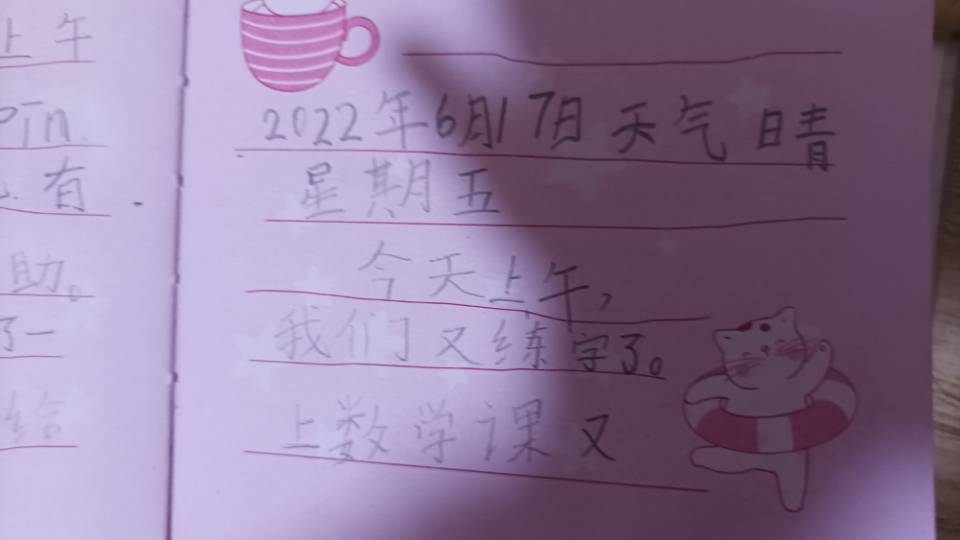 上午
pīn
有
助。
了一
给
2022年6月17日 天气 晴
星期五
今天上午，
我们又练字了。
上数学课又